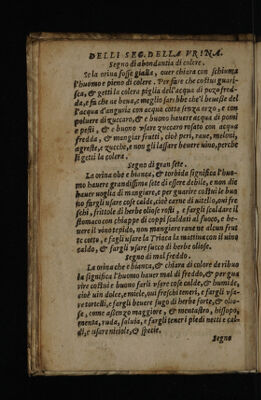 DELLI SEG. DELLA VRINA.
Segno di abondantia di colere.
Se la orina fosse gialla, ouer chiara con schiuma
l'huomo e pieno di colere. Per fare che costui guari-
sca, & getti la colera piglia dell'acqua di pozo fred-
da, e fa che ne beua, e meglio sarebbe che'l beuesse del
l'acqua d'anguria con acqua cotta senza orzo, e con
poluere di zuccaro, & e buono hauere acqua di pomi
e pesti, & e buono vsare zuccaro rosato con acqua
fredda, & mangiar frutti, cioè peri, raue, meloni,
agreste, e zucche, e non gli lassare beuere vino, perche
si getti la colera.
Segno di gran sete.
La orina che e bianca, & torbida significa l'huo-
mo hauere grandissima sete di essere debile, e non di
hauer uoglia di mangiare, e per guarire costui è buo
no fargli usare cose calde, cioè carne di uitello, oui fre
schi, frittole di herbe oliose rosti, e fargli scaldare il
stomaco con chiappe di coppi scaldati al fuoco, e be-
uere il vino tepido, non mangiare rane ne alcun frut
to cotto, e fagli usare la Triaca la mattina con il uino
caldo, & fargli usare succo di herbe oliose.
Segno di mal freddo.
La orina che e bianca, & chiara di colore de ribuo
la significa l'huomo hauer mal di freddo, & per gua
rire costui e buono farli vsare cose calde, & humide,
cioè uin dolce, e miele, oui freschi teneri, e fargli vsa-
re tortelli, e fargli beuere sugo di herbe forte, & olio-
se, come assenzo maggiore, & mentastro, hissopo,
menta, ruda, saluia, e fargli tener i piedi netti e cal-
di, e usare niciole, & spetie.
Segno